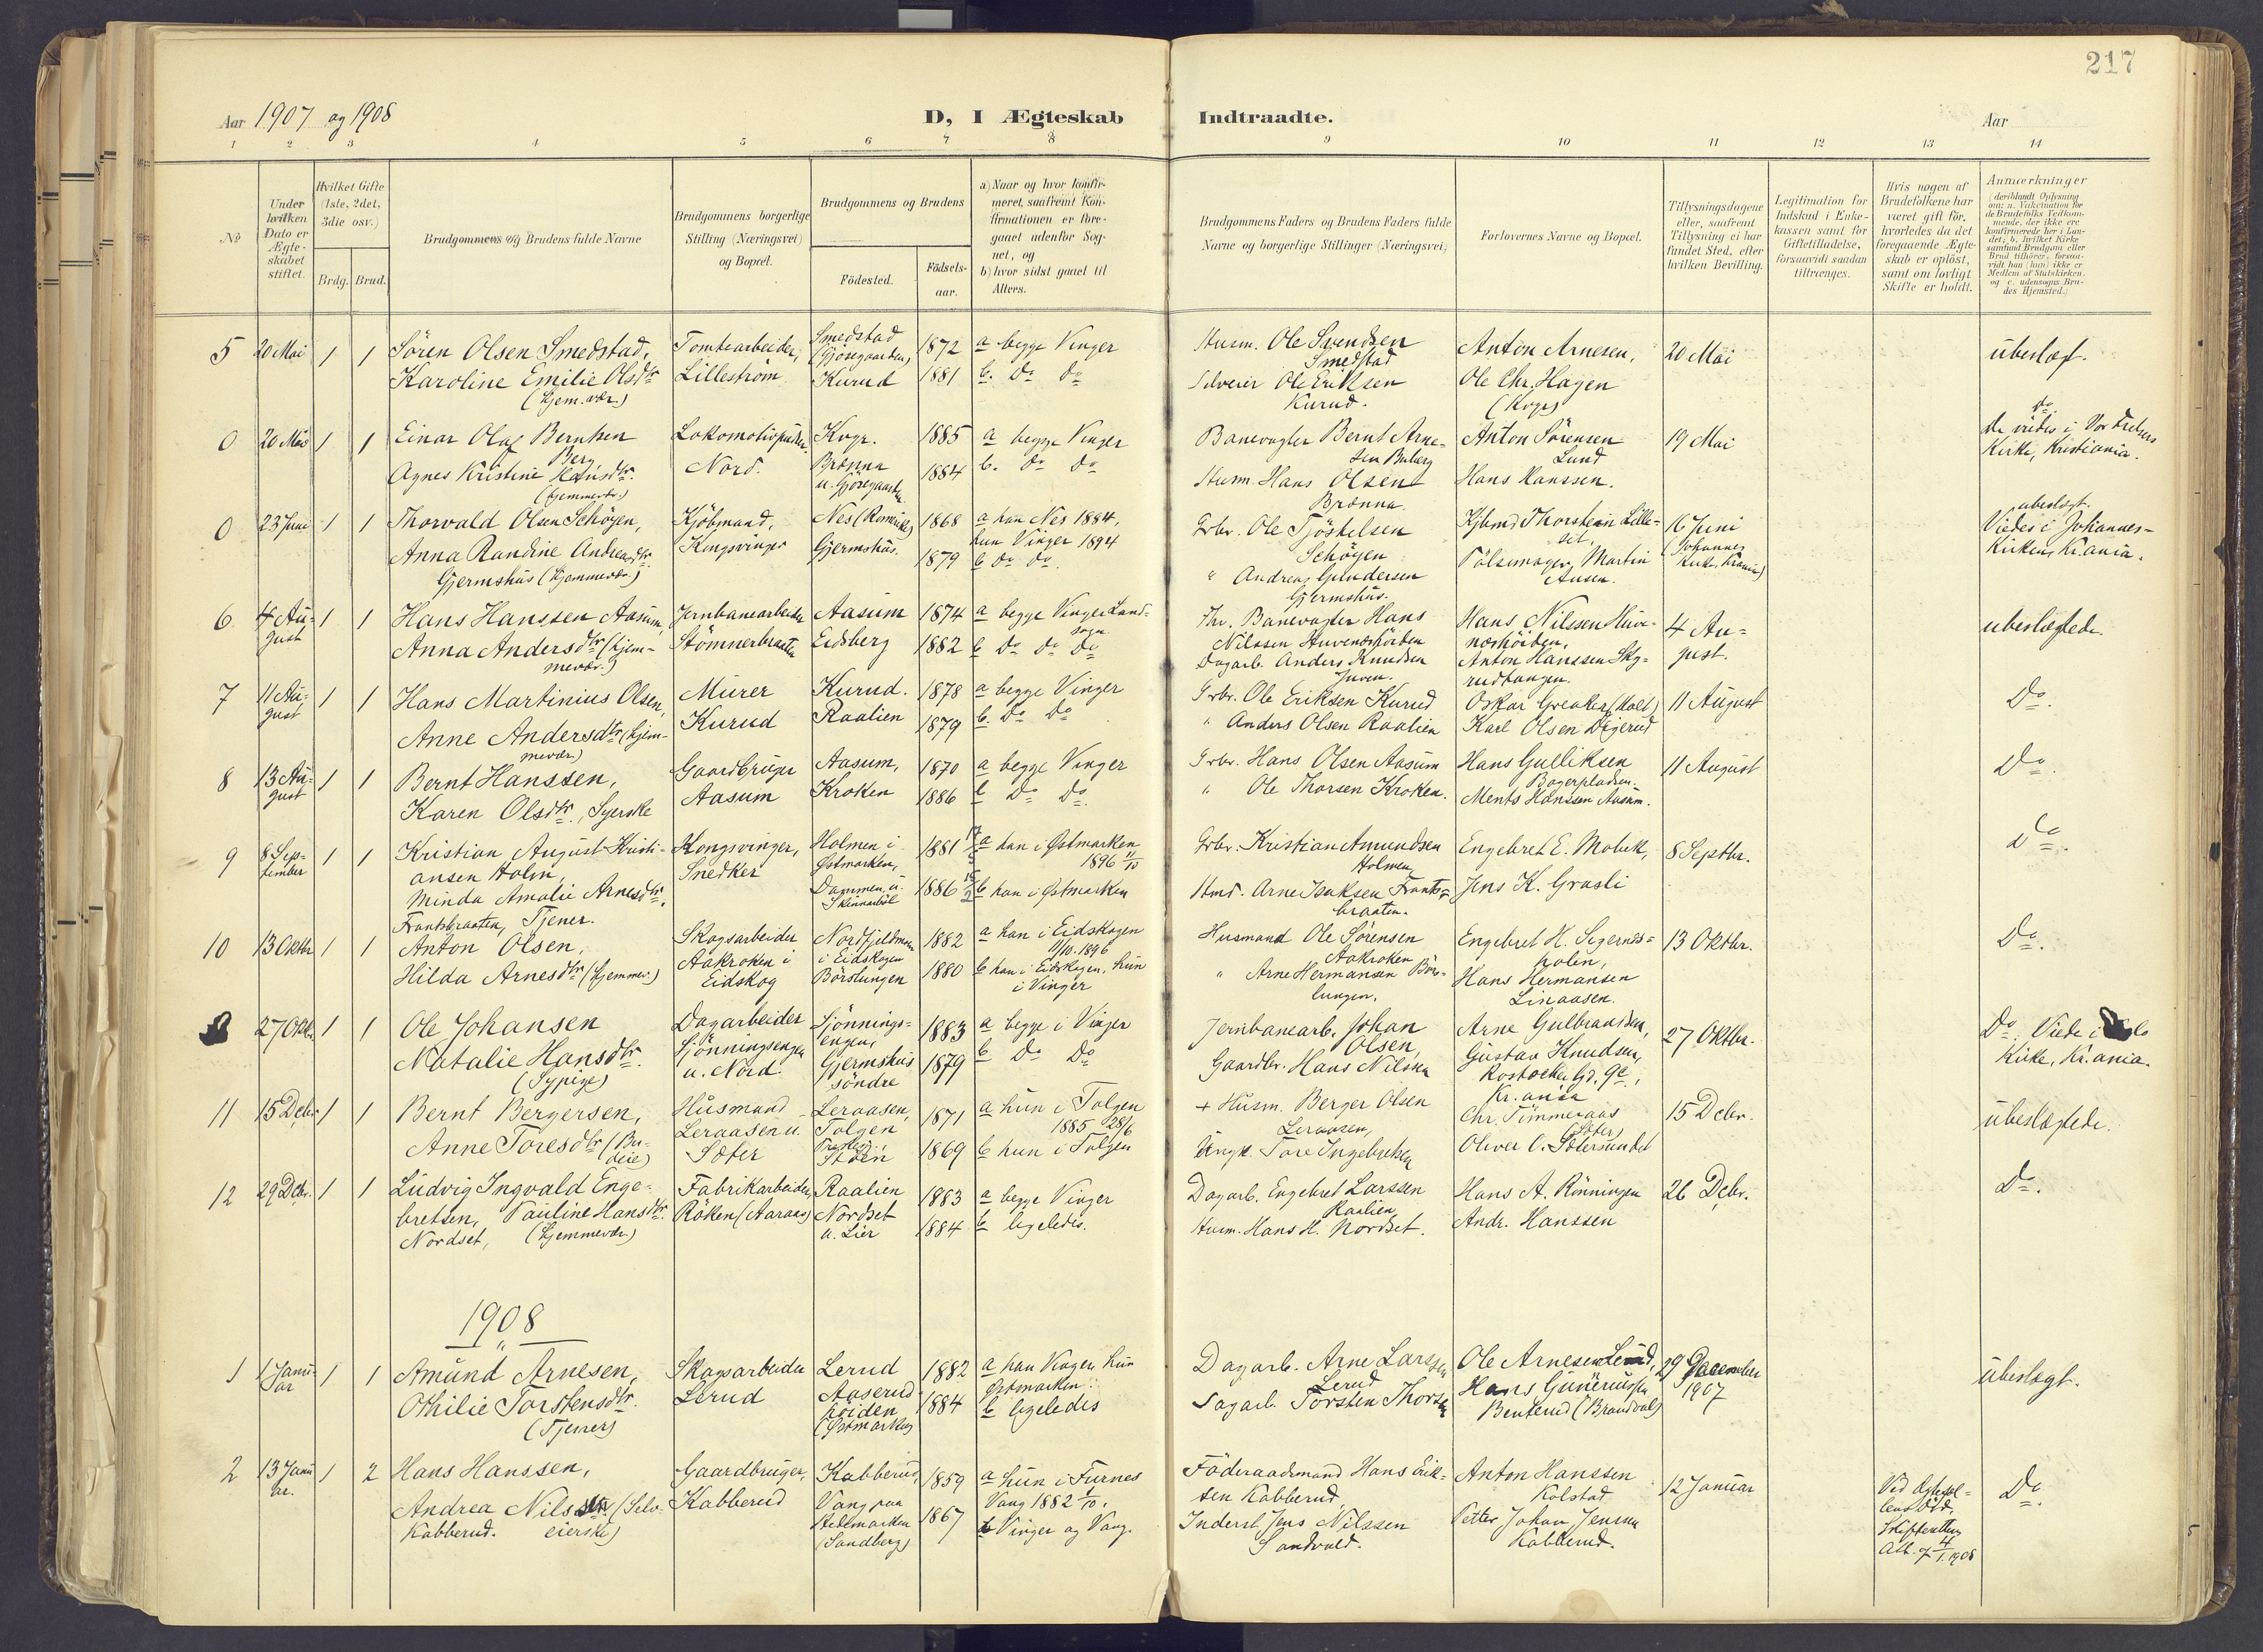 217
Aar 1907 og 1908
D, I Ægteskab Indtraadte.
Aar
1 2 3 4 5 6 7 8 9 10 11 12 13 14
No
Under hvilken Dato er Ægteskabet stiftet.
Hvilket Gifte (1ste, 2det, 3die osv.)
Brdg. Brud.
Brudgommens og Brudens fulde Navne
Brudgommens borgerlige Stilling (Næringsvei) og Bopæl.
Brudgommens og Brudens
Födested.
Födsels-aar.
a) Naar og hvor konfirmeret, saafremt Konfirmationen er foregaaet udenfor Sognet, og
b) hvor sidst gaaet til Alters.
Brudgommens Faders og Brudens Faders fulde Navne og borgerlige Stillinger (Næringsvei)
Forlovernes Navne og Bopæl.
Tillysningsdagene eller, saafremt Tillysning ei har fundet Sted, efter hvilken Bevilling.
Legitimation for Indskud i Enkekassen samt for Giftetilladelse, forsaavidt saadan tiltrænges.
Hvis nogen af Brudefolkene har været gift för, hvorledes da det foregaaende Ægteskab er oplöst, samt om lovligt Skifte er holdt.
Anmærkninger
5 20 Mai 1 1 Sören Olsen Smedstad, Karoline Emilie Olsdtr (hjem.vær.)
Tomtearbeider, Lilleström
Smedstad (Gjösegaarden) 1872
Kurud 1881
a begge Vinger
b. Do Do
Husm. Ole Svendsen Smedstad
Selveier Ole Eriksen Kurud.
Anton Arnesen,
Ole Chr. Hagen (Kvgr)
20 Mai
ubeslægt.
0 20 Mai 1 1 Einar Olaf Berntsen Berg
Agnes Kristine Hansdtr. (hjemmevær.)
Nord.
Kvgr. 1885
Brænna u. Gjösegaarden 1884
a begge Vinger
b. Do Do
Banevogter Bernt Arnesen
Husm. Hans Olsen Brænna.
Anton Sörensen Lund
Hans Hanssen.
19 Mai
Do
de viedes i Vor Frelsers Kirke, Kristiania.
0 23 Juni 1 1 Thorvald Olsen Schöyen,
Anna Randine Andreasdtr. Gjermshus (hjemmevær.)
Kjöbmand, Kongsvinger
Nes (Romerike) 1868
Gjermshus. 1879
a han Nes 1884, hun Vinger 1894
b Do Do.
Grbr. Ole Schöyen
" Andreas Gjermshus.
Kjbmd Thorstein Lilleset,
Pölsemager Martin
16 Juni (Johannes Kirke, Krania)
ubeslægt.
Viedes i Johannes-Kirken, Kr.ania.
6 4 August 1 1 Hans Hanssen Aasum,
Anna Andersdtr (hjemmevær.)
Jernbanearbeider
Aasum 1874
Eidsberg 1882
a begge Vinger Landsogn
b Do Do Do
Fhv. Banevogter Hans Nilssen
Dagarb. Anders Knudsen
Hans Nilssen
Anton Hanssen
4 August.
ubeslægtede.
7 11 August 1 1 Hans Martinius Olsen,
Anne Andersdtr (hjemmevær)
Murer Kurud
Kurud. 1878
Raalien 1879
a begge Vinger
b. Do Do
Grbr. Ole Eriksen Kurud
" Anders Olsen Raalien
Oskar Greaker (Moel)
Karl Olsen Digerud
11 August
Do.
8 13 August 1 1 Bernt Hanssen,
Karen Olsdtr., Syerske
Gaardbruger Aasum
Aasum, 1870
Kroken 1886
a begge Vinger
b Do Do
Grbr. Hans Olsen Aasum
" Ole Thorsen Kroken.
Hans Gulliksen
Ments Hanssen Aasum.
11 August
Do.
9 8 September 1 1 Kristian August Kristiansen Holm,
Minda Amalie Arnesdtr. Frantsbraaten, Tjener.
Kongsvinger, Snedker
Holmen i Östmarken, 1881
Dammen u. Skinnarböl 1886
a han i Östmarken 1896 11/10
b han i Östmarken
Grbr. Kristian Amundsen Holmen
Hmd. Arne Isaksen Frantsbraaten.
Engebret E. Mobæk,
Jens K. Grasli
8 Septbr.
Do.
10 13 Oktbr 1 1 Anton Olsen,
Hilda Arnesdtr (hjemmev.)
Skogsarbeider Aakroken i Eidskog
i Eidskogen 1882
Börslungen 1880
a han i Eidskogen 11/10.1896
b han i Eidskogen, hun i Vinger
Husmand Ole Sörensen Aakroken
" Arne Hermansen Börslungen.
Engebret H. Sigernesholen,
Hans Hermansen Linaasen.
13 Oktbr.
Do.
27 Oktbr. 1 1 Ole Johansen
Natalie Hansdtr. (Sypige)
Dagarbeider Sjönningsengen u. Nord.
Sjönningsengen, 1883
Gjermshus söndre 1879
a begge i Vinger
b Do Do
Jernbanearb. Johan Olsen,
Gaardbr. Hans Nilsen
Arne Gulbrandsen,
Gustav Knudsen, Kr.ania
27 Oktbr.
Do. Viede i Oslo Kirke, Kr.ania.
11 15 Debr. 1 1 Bernt Bergersen,
Anne Toresdtr (Budeie)
Husmand Leraasen u. Sæter
Leraasen, 1871
Tolgen 1869
a hun i Tolgen 1885 28/6
b hun i Tolgen
+ Husm. Berger Olsen Leraasen,
Ungk. Tore Ingebretsen
Chr. Timmeraas (Sæter)
Oliver O. Sætersundet
15 Debr.
ubeslægtede.
12 29 Debr. 1 1 Ludvig Ingvald Engebretsen, Pauline Hansdtr. Nordset, (hjemmevær)
Fabrikarbeider, Röken (Aaraas)
Raalien 1883
Nordset u. Lier 1884
a begge Vinger
b ligeledes.
Dagarb. Engebret Larssen Raalien
Husm. Hans H. Nordset.
Hans A. Rönningen
Andr. Hanssen
26 Debr.
Do.
1908
1 1 Januar 1 1 Amund Arnesen,
Othilie Torstensdtr. (Tjener)
Skogsarbeider Lerud
Lerud 1882
Aaserud höiden (Östmarken) 1884
a han Vinger hun Östmarken
b ligeledes
Dagarb. Arne Larssen Lerud
Dagarb. Torsten Thorsen
Ole Arnesen Lerud,
Hans Gunerussen Benterud (Brandval)
29 December 1907
ubeslægt.
2 13 Januar. 1 2 Hans Hanssen,
Andrea Nilsdtr. (Selveierske) Kabberud.
Gaardbruger, Kabberud
Kabberud 1859
Vang paa Hedemarken (Sandberg) 1867
a hun i Furnes Vang 1882 1/10.
b Vinger og Vang.
Föderaadsmand Hans Eriksen Kabberud,
Inderst Jens Nilssen Sandvold.
Anton Hanssen Kolstad
Petter Johan Jensen Kabberud.
12 Januar
Ved Ægtefællens Död. Skifteattest 4/1.1908
Do.